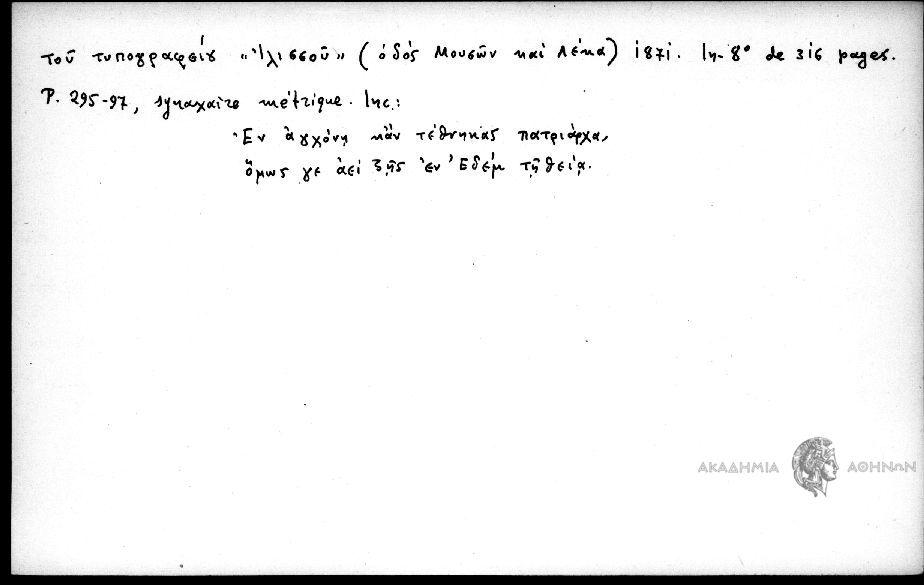 τοῦ τυπογραφείου «Ἰλισσοῦ» (ὁδός Μουσῶν καί Λέκα) 1871. In-8° de 316 pages.
P. 295-97, synaxaire métrique. Inc.:
Ἐν ἀγχόνῃ κἄν τέθνηκας πατριάρχα,
ὅμως γε ἀεί ζῇς ἐν Ἐδέμ τῇ θείᾳ.
ΑΚΑΔΗΜΙΑ ΑΘΗΝΩΝ